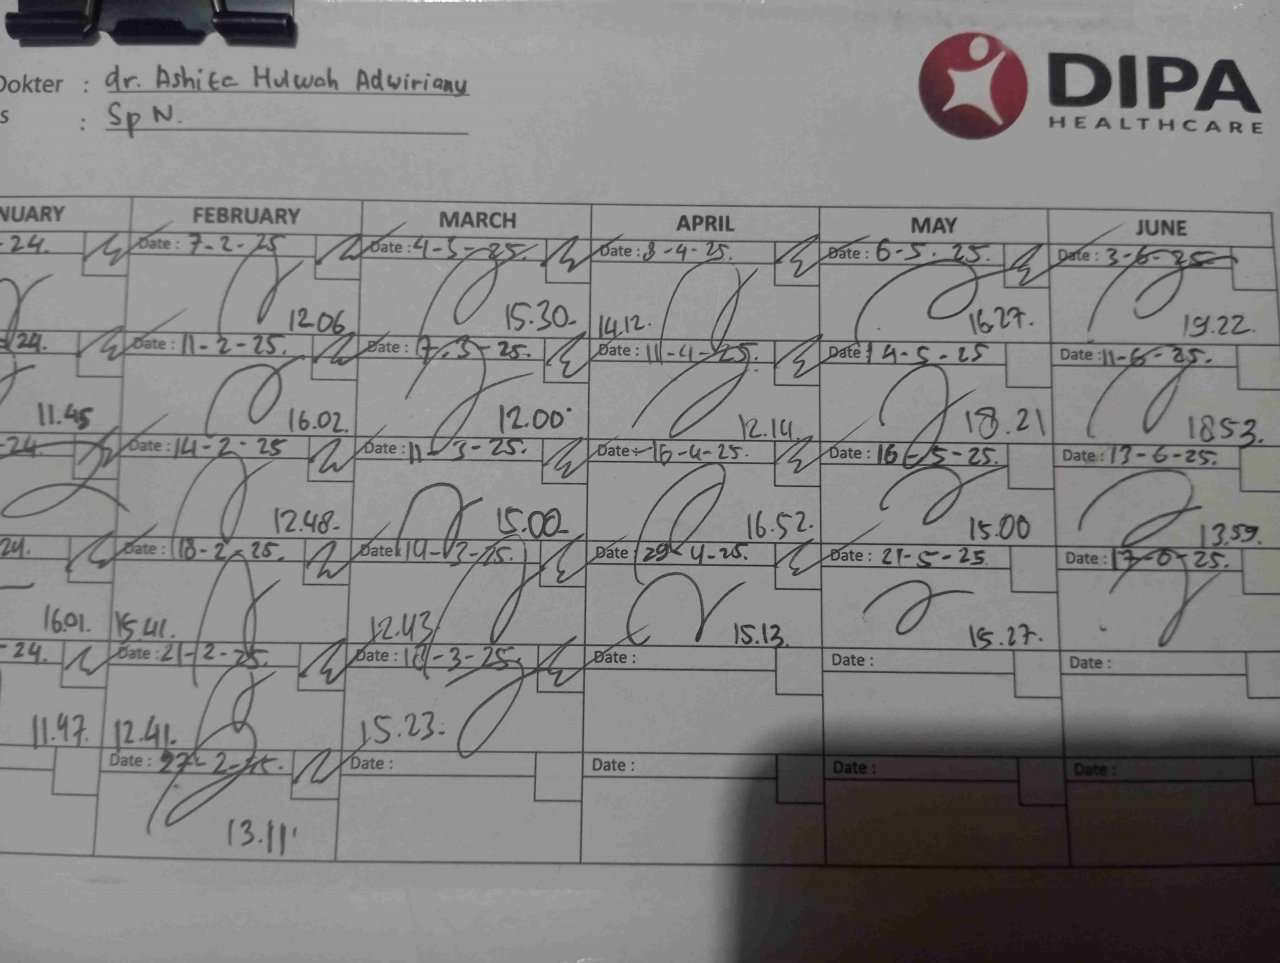 Dokter : dr. Ashita Hulwah Adwirianny
s : Sp N.
DIPA
HEALTHCARE
NUARY FEBRUARY MARCH APRIL MAY JUNE
-24. Date : 7-2-25 Date : 4-3-25. Date : 8-4-25. Date : 6-5.25. Date : 3-6-25
12.06 15.30. 14.12. 16.27. 19.22.
24. Date : 11-2-25. Date : 7.3-25. Date : 11-4-25. Date : 14-5-25 Date : 11-6-25.
11.45 16.02. 12.00 12.14. 18.21 18.53.
-24. Date : 14-2-25 Date : 11-3-25. Date : 16-4-25. Date : 16-5-25. Date : 13-6-25.
12.48. 15.00 16.52. 15.00 13.59.
24. Date : 18-2-25. Date : 14-3-25. Date : 29-4-25. Date : 21-5-25 Date : 17-6-25.
16.01. 15.41. 12.43 15.13. 15.27.
-24. Date : 21-2-25. Date : 18-3-25. Date : Date : Date :
11.47. 12.41. 15.23.
Date : 27-2-25. Date : Date : Date : Date :
13.11